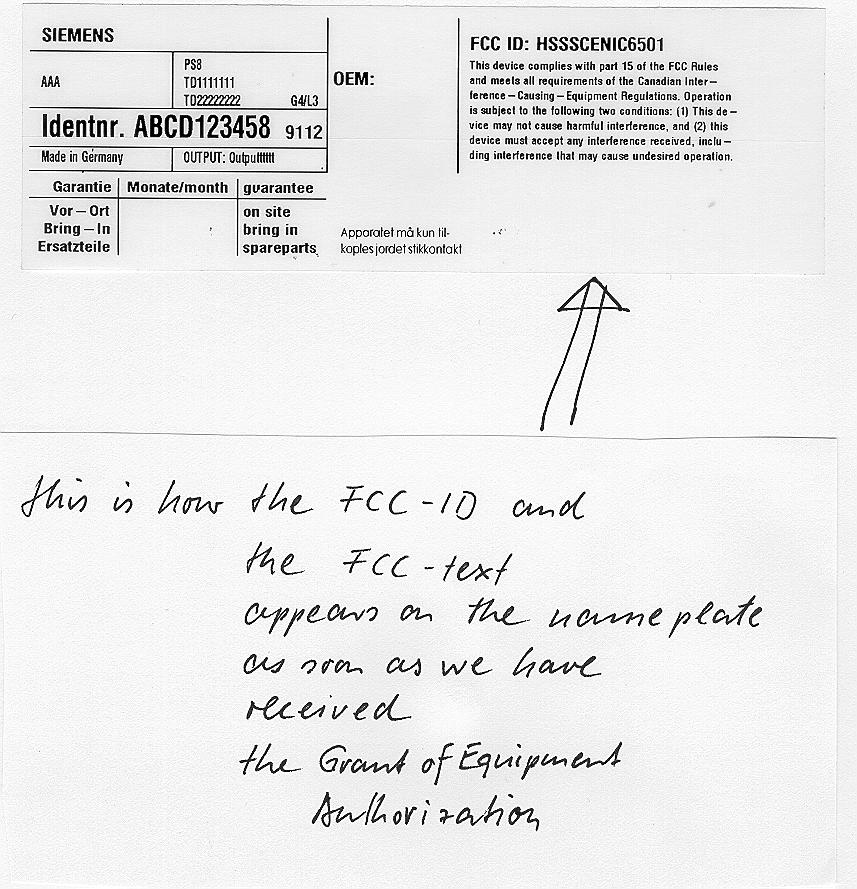 SIEMENS
AAA
PS8
TD1111111
TD22222222 G4/L3
Identnr. ABCD123458 9112
Made in Germany OUTPUT: Outputttttt
Garantie Monate/month guarantee
Vor–Ort on site
Bring–In bring in
Ersatzteile spareparts
OEM:
Apparatet må kun til-
koples jordet stikkontakt
FCC ID: HSSSCENIC6501
This device complies with part 15 of the FCC Rules
and meets all requirements of the Canadian Inter–
ference–Causing–Equipment Regulations. Operation
is subject to the following two conditions: (1) This de–
vice may not cause harmful interference, and (2) this
device must accept any interference received, inclu–
ding interference that may cause undesired operation.
this is how the FCC-ID and
the FCC-text
appears on the nameplate
as soon as we have
received
the Grant of Equipment
Authorization